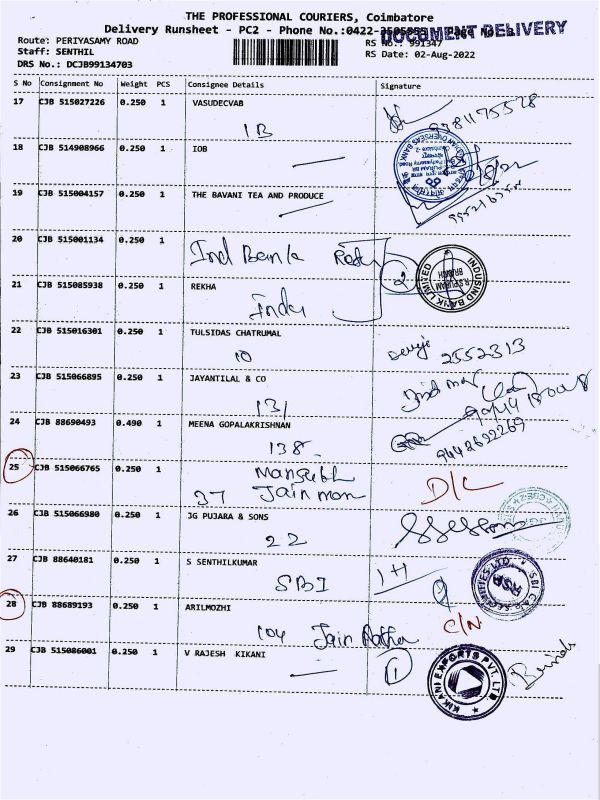 THE PROFESSIONAL COURIERS, Coimbatore
Delivery Runsheet - PC2 - Phone No.:0422-
DOCUMENT DELIVERY
Route: PERIYASAMY ROAD
RS No.: 991347
Staff: SENTHIL
RS Date: 02-Aug-2022
DRS No.: DCJB99134703
S No Consignment No Weight PCS Consignee Details Signature
17 CJB 515027226 0.250 1 VASUDECVAB
1B
18 CJB 514908966 0.250 1 IOB
19 CJB 515004157 0.250 1 THE BAVANI TEA AND PRODUCE
20 CJB 515001134 0.250 1
Ind Bank
2
INDUSIND BANK LIMITED
R.S. PURAM
BRANCH
21 CJB 515085938 0.250 1 REKHA
Indu
22 CJB 515016301 0.250 1 TULSIDAS CHATRUMAL
10 2552313
23 CJB 515066895 0.250 1 JAYANTILAL & CO
131
24 CJB 88690493 0.490 1 MEENA GOPALAKRISHNAN
138 9442692269
25 CJB 515066765 0.250 1
37 Jain D/L
26 CJB 515066980 0.250 1 JG PUJARA & SONS
22
27 CJB 88640181 0.250 1 S SENTHILKUMAR
SBI
28 CJB 88689193 0.250 1 ARILMOZHI
104 Jain C/N
29 CJB 515086001 0.250 1 V RAJESH KIKANI
1
KIKANI EXPORTS PVT. LTD